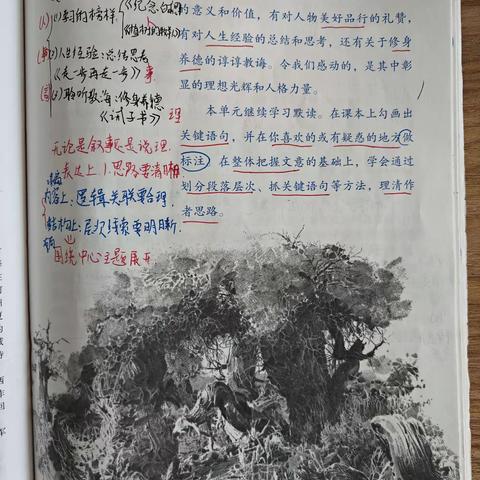 (人)(1)我们的榜样 《纪念白求恩》
《植树的牧羊人》
(事)(2)人生经验:总结思考
《走一步再走一步》事
(言)(3)聆听教诲:修身养德
《诫子书》 理
无论是叙事还是说理
表达上 1.思路要清晰
内容上:逻辑关联要合理
结构上:层次线索要明晰
围绕中心主题展开
的意义和价值,有对人物美好品行的礼赞,
有对人生经验的总结和思考,还有关于修身
养德的谆谆教诲。令我们感动的,是其中彰
显的理想光辉和人格力量。
本单元继续学习默读。在课本上勾画出
关键语句,并在你喜欢的或有疑惑的地方做
标注。在整体把握文意的基础上,学会通过
划分段落层次、抓关键语句等方法,理清作
者思路。